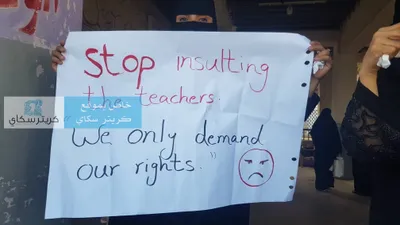 Stop insulting
the teachers.
"We only demand
our rights."
خاص بموقع
كريتر سكاي
كريتر سكاي